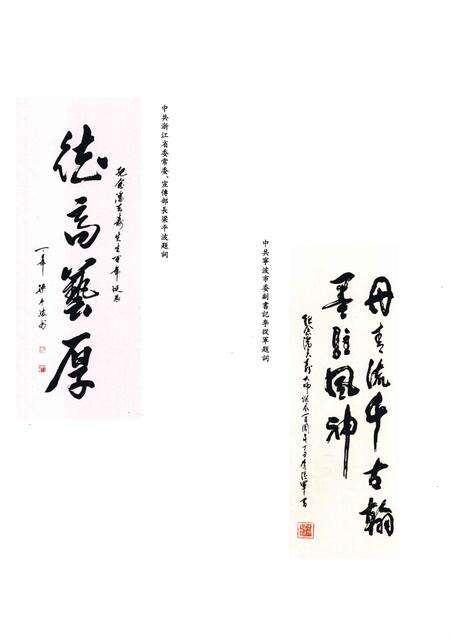 德高藝厚
紀念潘天壽先生百年誕辰
丁丑年 梁平波書
中共浙江省委常委、宣傳部長梁平波題詞
中共寧波市委副書記李從軍題詞
丹青流千古翰
墨駐風神
紀念潘天壽大師誕辰百周年丁丑李從軍書